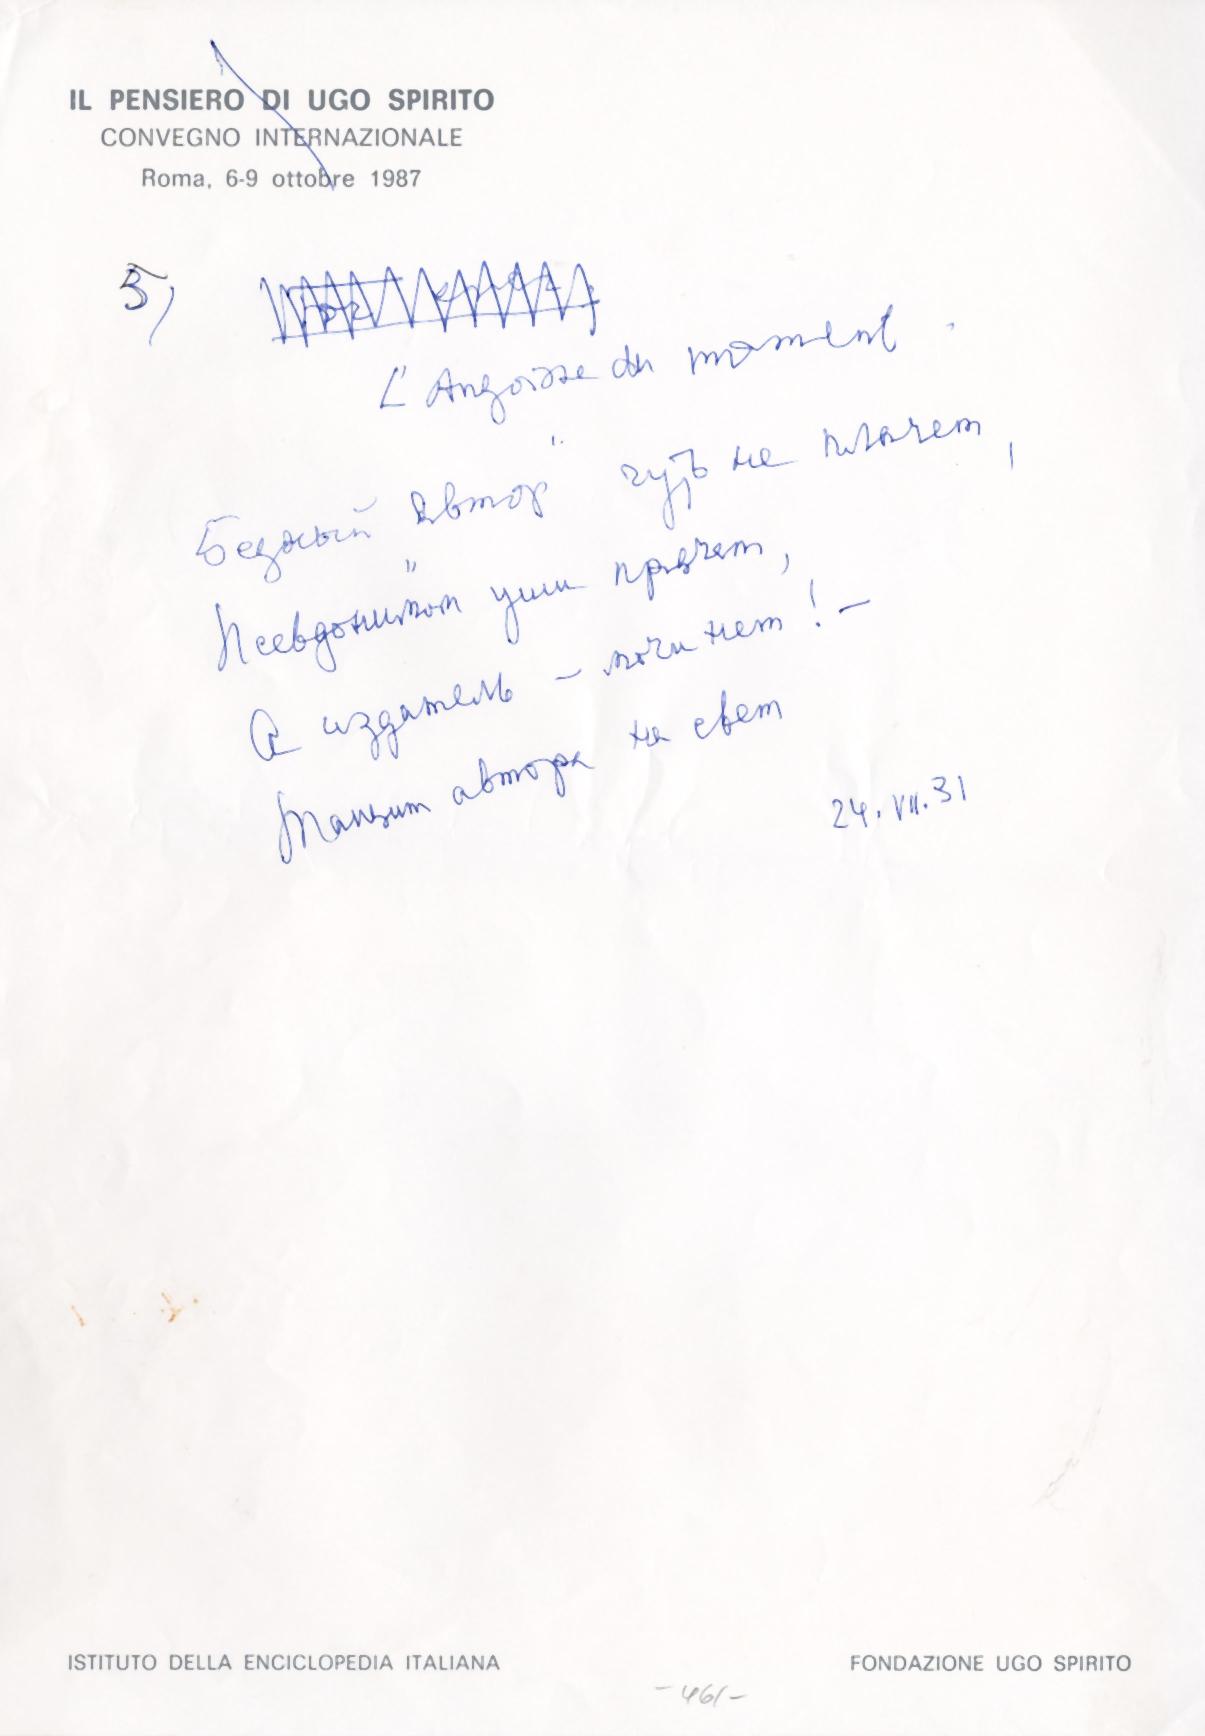 IL PENSIERO DI UGO SPIRITO
CONVEGNO INTERNAZIONALE
Roma, 6-9 ottobre 1987
5)
L'Angoisse du moment.
Бедный "Автор" чуть не плачет,
Псевдонимом уши прячет,
А издатель – мочи нет! –
Тащит автора на свет
24.VII.31
ISTITUTO DELLA ENCICLOPEDIA ITALIANA
FONDAZIONE UGO SPIRITO
-461-